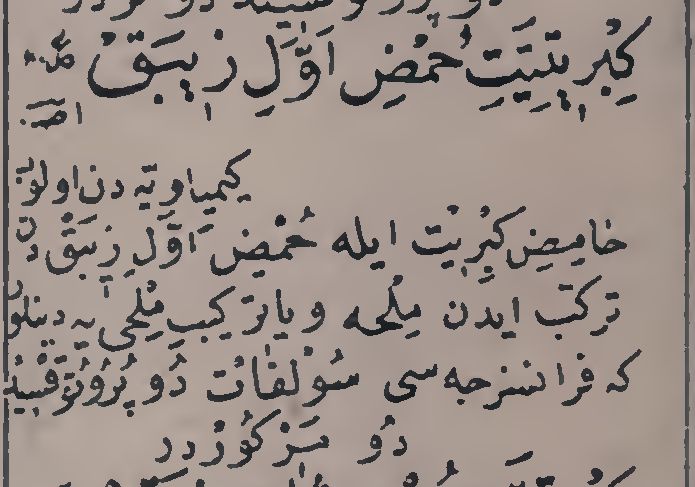 كِبْرِيتِيَّتِ حُمْضِ اَوَّلِ زِيبَقْ
كيمياويه دن اولوب
حامِضِ كِبْرِيْت ايله حُمْضِ اَوَّلِ زِيبَقْ دن
تركّب ايدن مِلْحه ويا تركيبِ مِلْحى يه دينلور
كه فرانسزجه سى سُوْلفَاتْ دُو پْرُوُتُوقْسِيْدْ
دُو مَرْكُوْر در